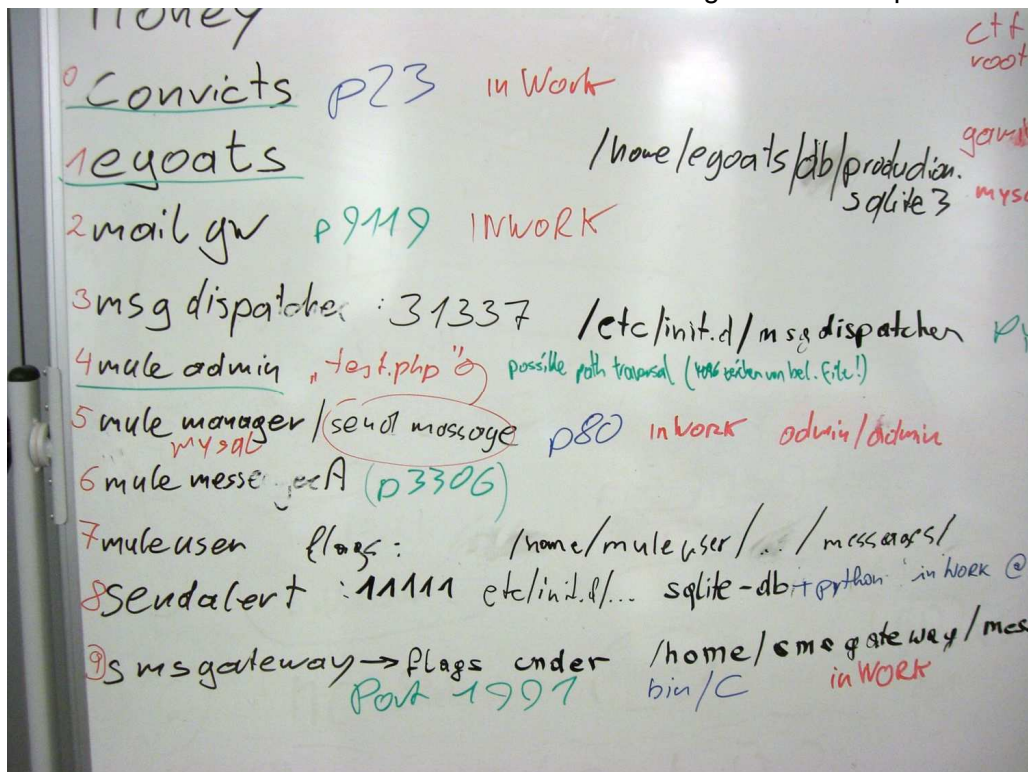 Honey
ctf
root
0 Convicts p23 in Work
1 egoats /home/egoats/db/production.
sqlite3
2 mail gw p9119 INWORK
3 msg dispatcher : 31337 /etc/init.d/msgdispatcher
4 mule admin „test.php" possible path traversal ( bel. File!)
5 mule manager/send message p80 in WORK admin/admin
mysql
6 mule messe A (p3306)
7 muleuser flags: /home/muleuser/.../messages/
8 Sendalert :11111 etc/init.d/... sqlite-db + python in WORK @
9 smsgateway → flags under /home/smsgateway/mes
Port 1991 bin/C in WORK